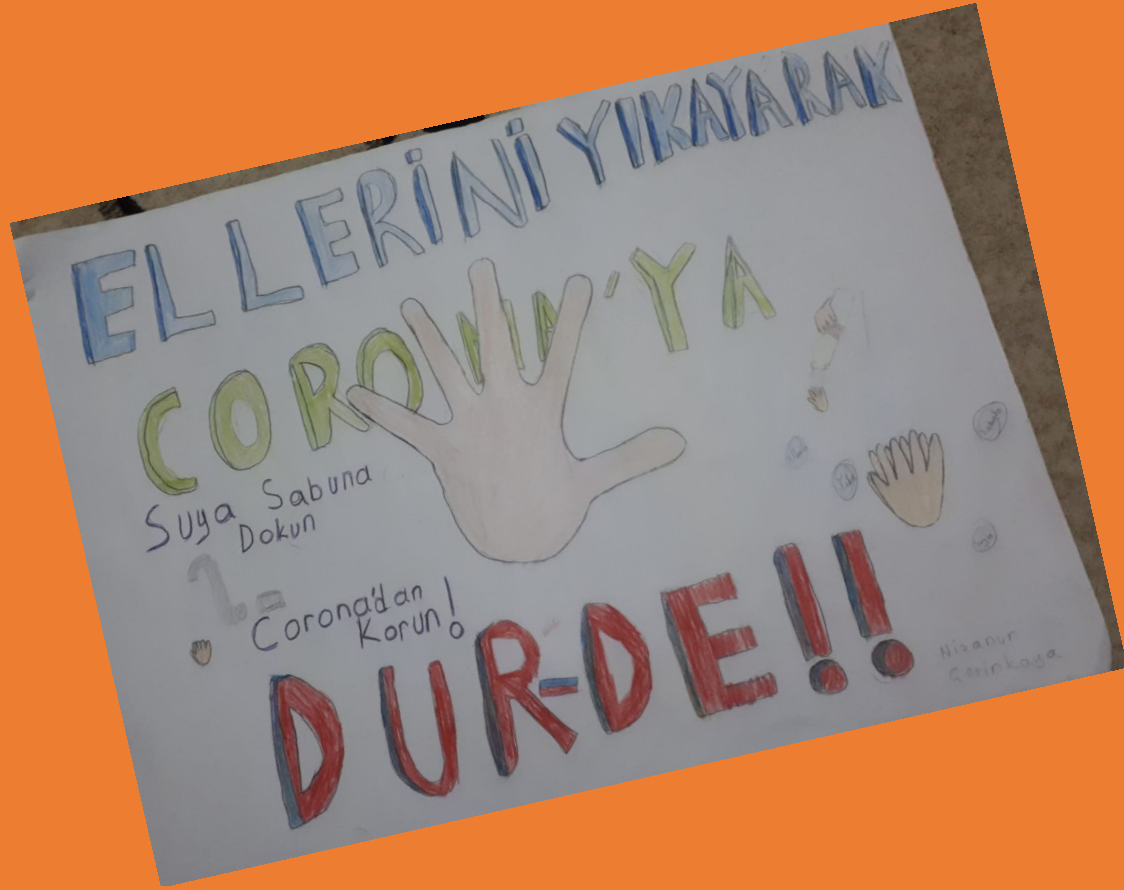 ELLERİNİ YIKAYARAK
CORONA'YA
Suya Sabuna
Dokun
Corona'dan
Korun!
DUR-DE!!
Nisanur